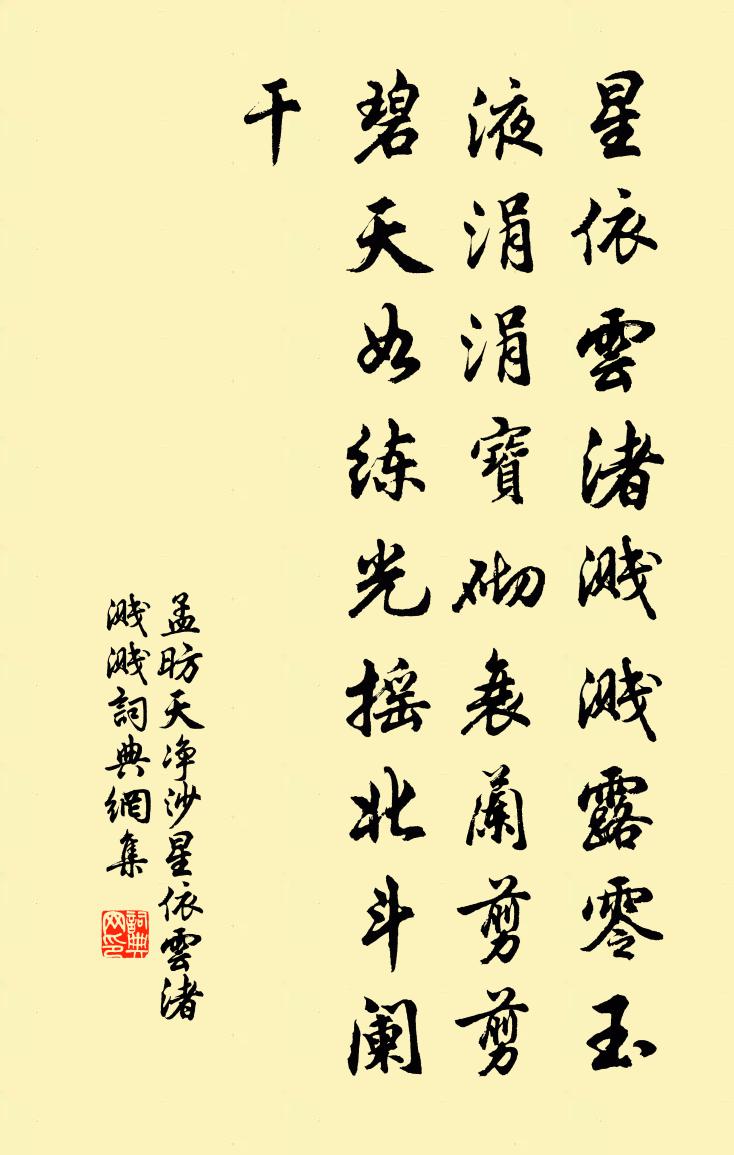 星依雲渚濺濺露零玉
液涓涓寶砌衰蘭剪剪
碧天如练光摇北斗阑
干
孟昉天净沙星依雲渚
濺濺詞典網集
詞典网印